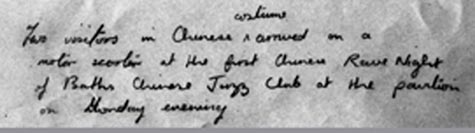 costume
Two visitors in Chinese ʌ arrived on a
motor scooter at the first Chinese Rave Night
of Baths Chinese Jazz Club at the pavilion
on Monday evening